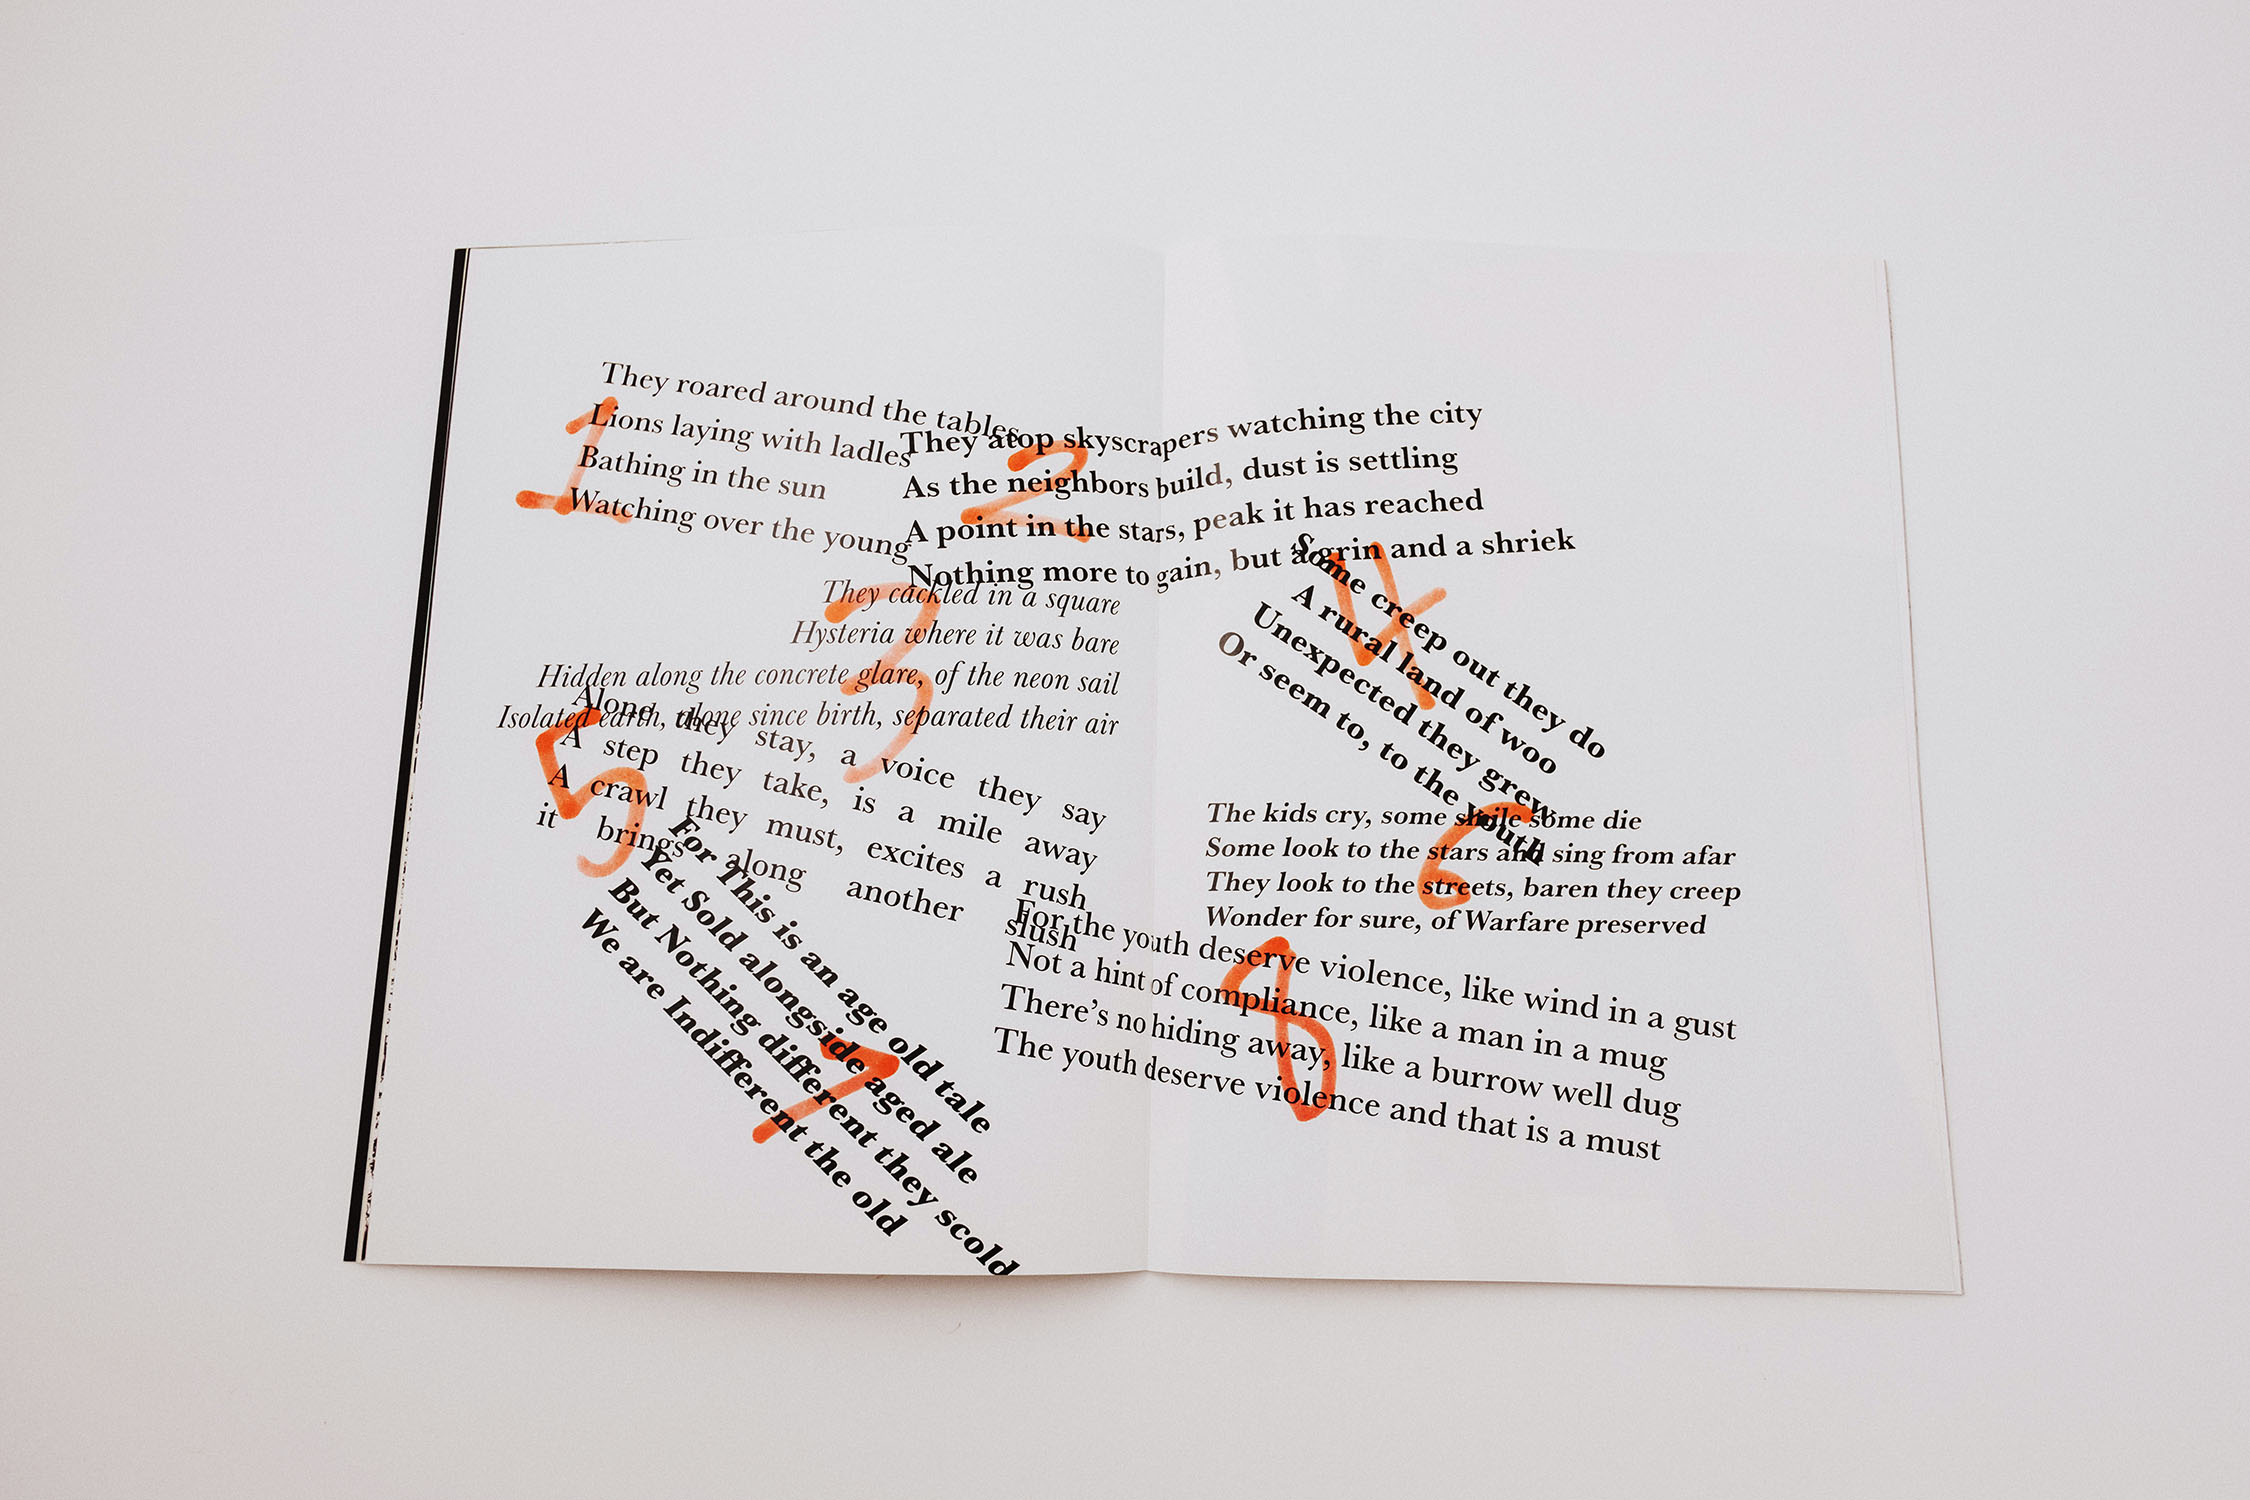 1
They roared around the tables
Lions laying with ladles
Bathing in the sun
Watching over the young
2
They atop skyscrapers watching the city
As the neighbors build, dust is settling
A point in the stars, peak it has reached
Nothing more to gain, but a grin and a shriek
3
They cackled in a square
Hysteria where it was bare
Hidden along the concrete glare, of the neon sail
Isolated earth, alone since birth, separated their air
4
Some creep out they do
A rural land of woo
Unexpected they grew
Or seem to, to the youth
5
Alone they stay, a voice they say
A step they take, is a mile away
A crawl they must, excites a rush
it brings along another slush
6
The kids cry, some smile some die
Some look to the stars and sing from afar
They look to the streets, baren they creep
Wonder for sure, of Warfare preserved
7
For This is an age old tale
Yet Sold alongside aged ale
But Nothing different they scold
We are Indifferent the old
8
For the youth deserve violence, like wind in a gust
Not a hint of compliance, like a man in a mug
There's no hiding away, like a burrow well dug
The youth deserve violence and that is a must